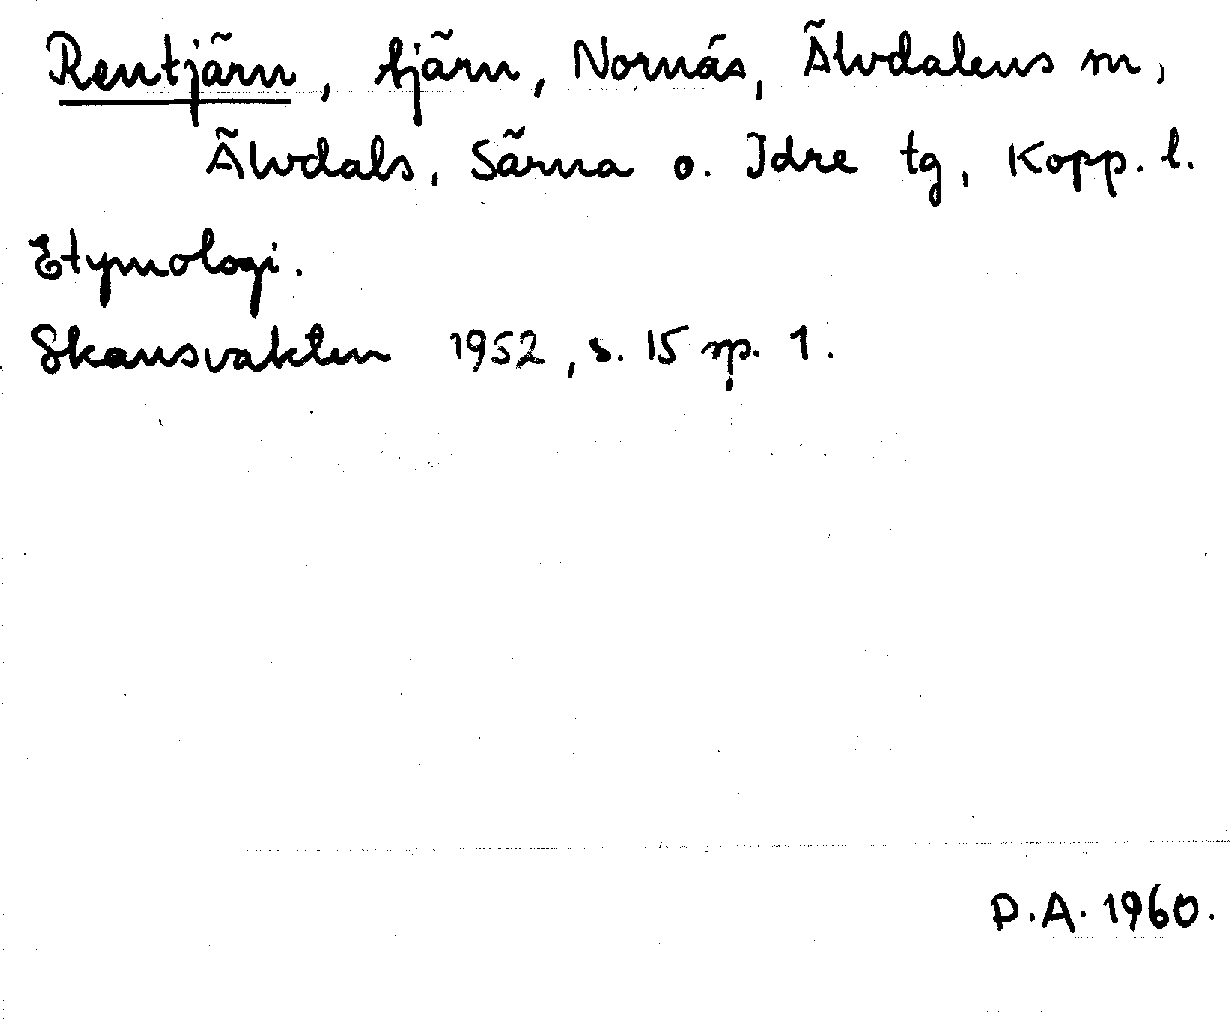 Rentjärn, tjärn, Nornäs, Älvdalens sn,
Älvdals, Särna o. Idre tg, Kopp. l.
Etymologi.
Skansvakten 1952, s. 15 sp. 1.
D.A. 1960.